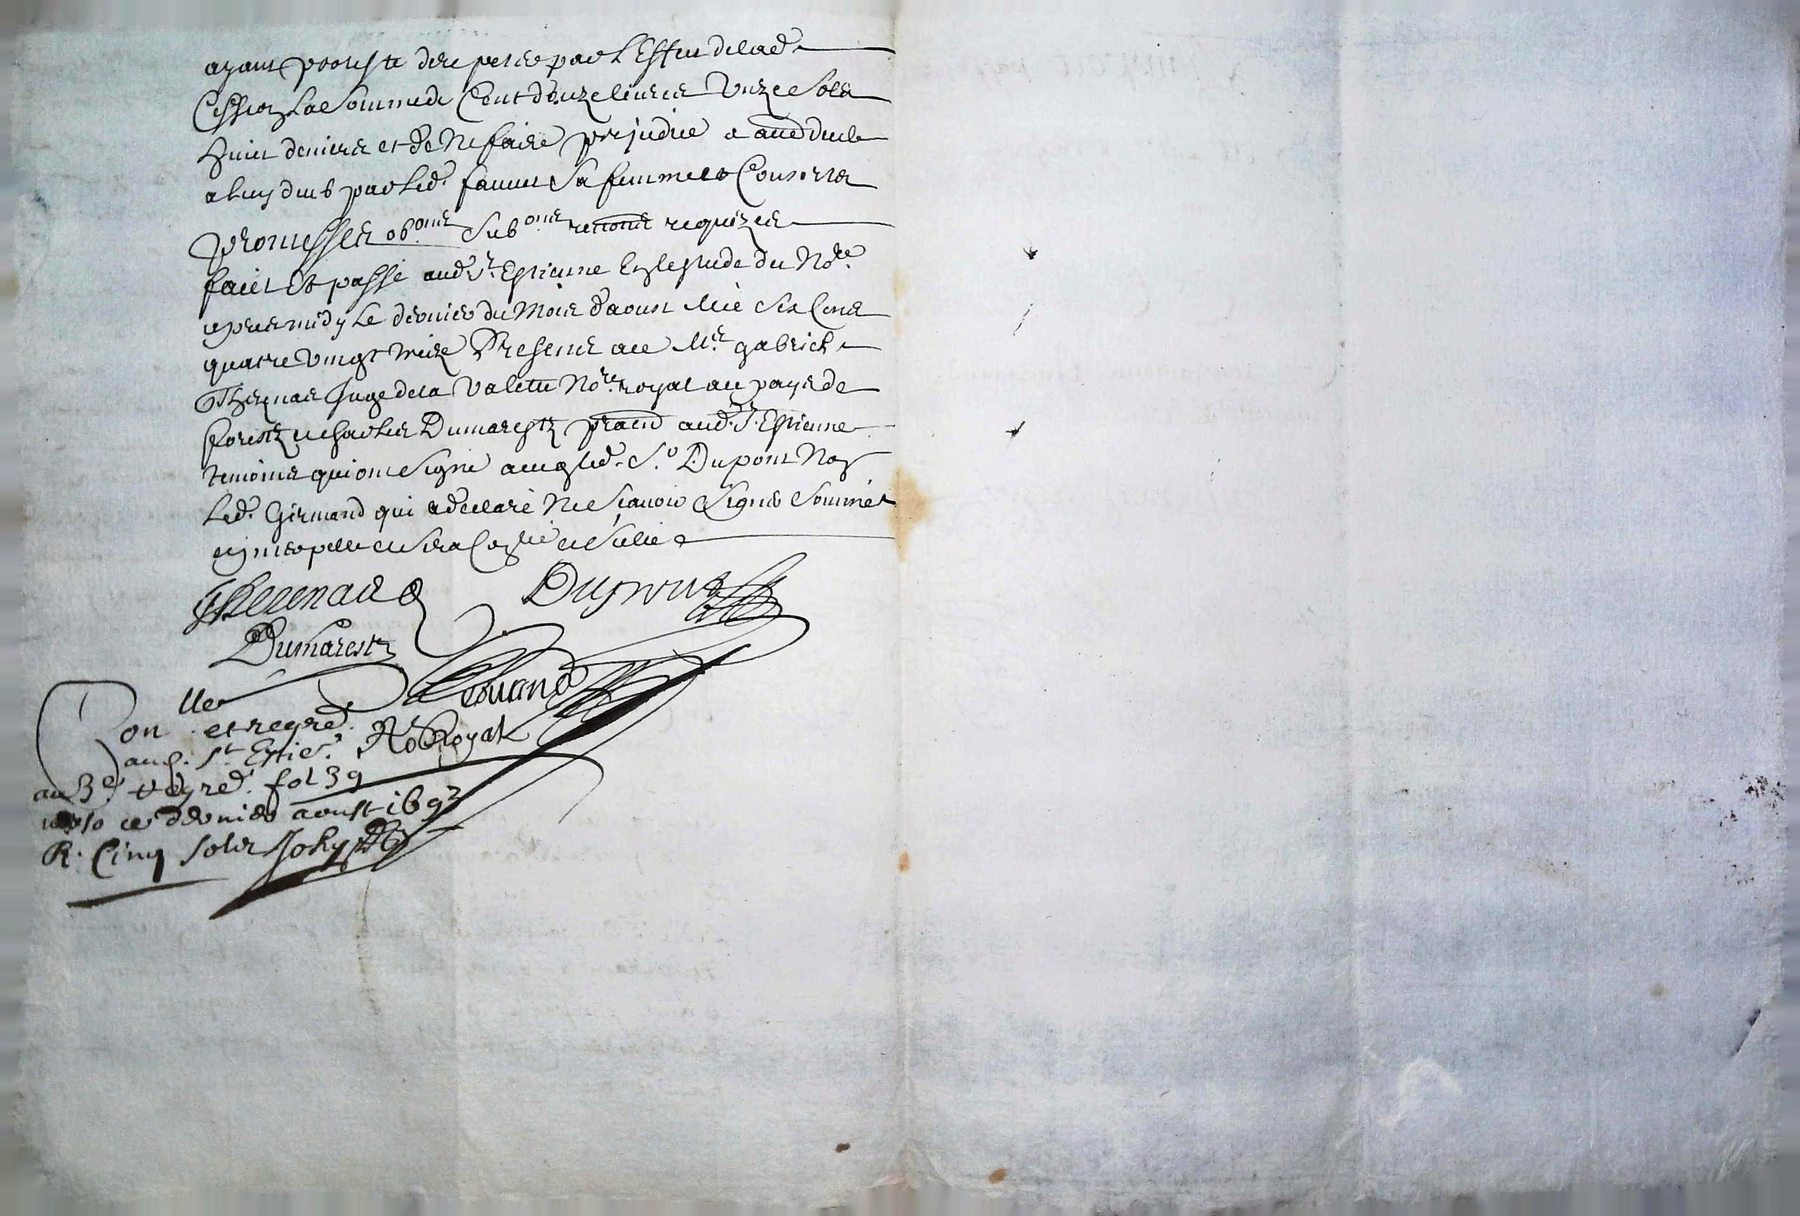 ayant proteste de repeter par l'Effet de lad.
Cession La somme de Cent douze livres Unze Sols
huict deniers et de Ne faire prejudice a
a luy deub par led. sa femme et Consorts
promesses ob.ons sub.ons renons requizes
faict Et passé aud. St. Estienne En lestude du No.re
apres midy Le dernier du Mois d'aoust Mil Six Cens
quatre vingt treize Presens Me M.re gabriel
Theznas Juge de la Valette No.re royal au pays de
forestz et Charles Dumarestz prat aud. St. Estienne
temoins qui ont Signé avecq led. Sr. Dupont Non
Led. Girmand qui a declaré Ne Scavoir Signer Sommés
enquis
Dupont
Dumarestz
No.re Royal
Con.llé et regré
aud. St. Estie.
au 3e regré. fol 39
verso ce dernier aoust 1693
R. Cinq sols Joly